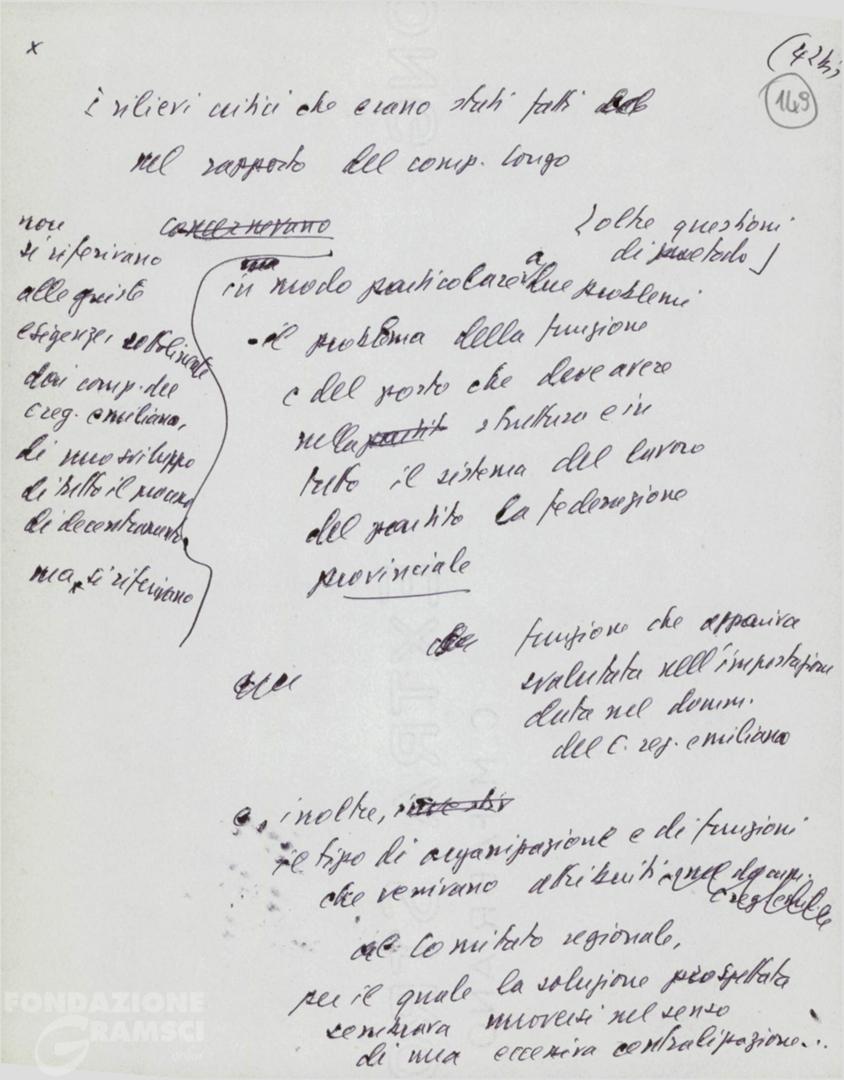 x
(42 bis)
149
i rilievi critici che erano stati fatti
nel rapporto del comp. Longo
concernevano
[oltre questioni
di metodo]
non
si riferivano
alle giuste
esigenze, sottolineate
dai comp. del
C reg. emiliano,
di uno sviluppo
di tutto il processo
di decentramento
ma, si riferivano
ma
in modo particolare a due problemi
- il problema della funzione
e del posto che deve avere
nella partit struttura e in
tutto il sistema del lavoro
del partito la federazione
provinciale
funzione che appariva
svalutata nell'impostazione
data nel docum.
del C. reg. emiliano
e, inoltre,
il tipo di organizzazione e di funzioni
che venivano attribuiti nel docum.
C reg emiliano
al Comitato regionale,
per il quale la soluzione prospettata
sembrava muoversi nel senso
di una eccessiva centralizzazione...
FONDAZIONE
GRAMSCI